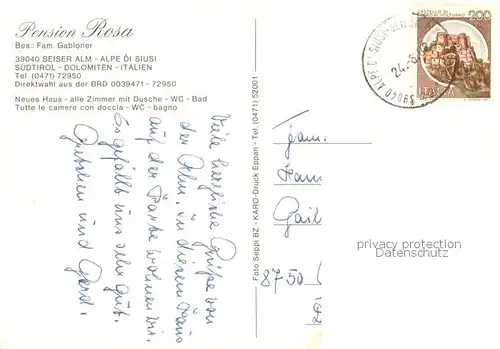 Pension Rosa
Bes.: Fam. Gabloner
39040 SEISER ALM - ALPE DI SIUSI
SÜDTIROL - DOLOMITEN - ITALIEN
Tel. (0471) 72950
Direktwahl aus der BRD 0039471 - 72950
Neues Haus - alle Zimmer mit Dusche - WC - Bad
Tutte le camere con doccia - WC - bagno
Viele herzliche Grüße von
der Alm, in diesem Haus
auf der wohnen wir.
Es gefällt uns sehr gut.
und Gerd.
Foto Seppi BZ - KARO-Druck Eppan - Tel. (0471) 52001
CASTELLO DI
200
ITALIA
39040 ALPE DI SIUSI
Fam.
8750
privacy protection
Datenschutz